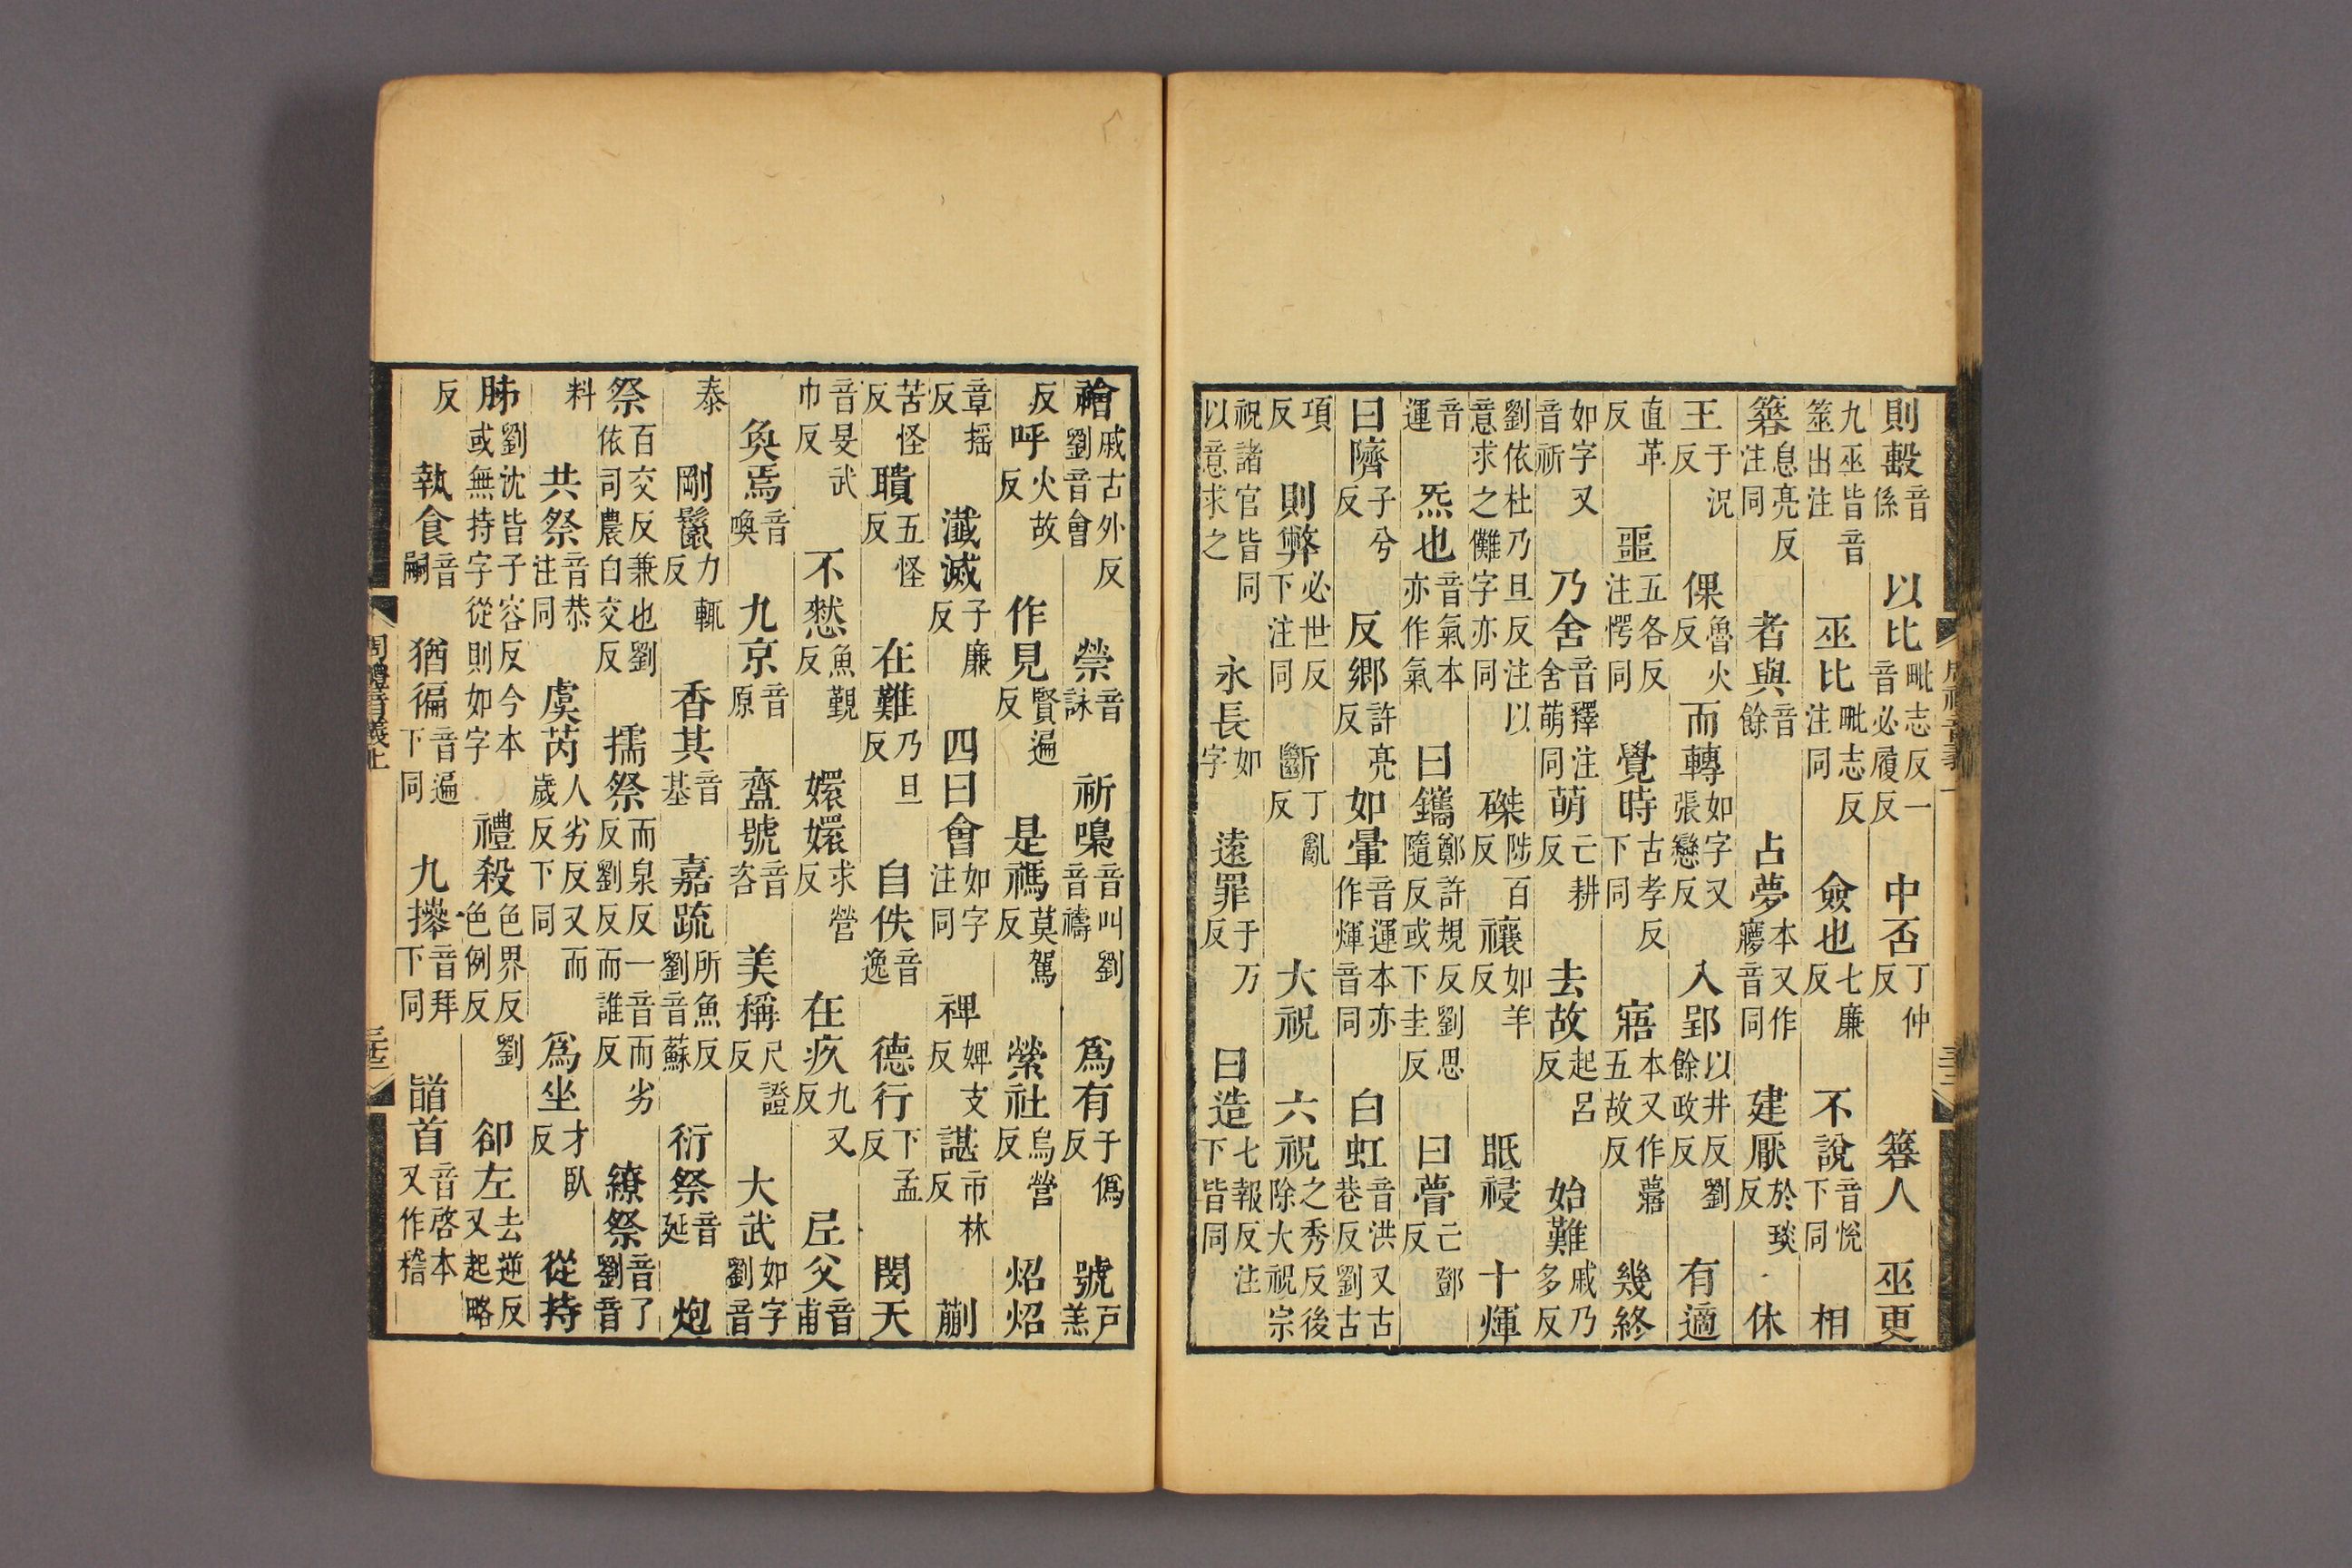 則毄音係 以比毗志反一音必履反 中否丁仲反 簭人 巫更
九巫皆音筮出注 巫比毗志反注同 僉也七廉反 不說音悅下同 相
簭息亮反注同 者與音餘 占夢本又作㝱音同 建厭於琰反 休
王于況反 倮魯火反 而轉如字又張戀反 入郢以井反劉餘政反 有適
直革反 噩五各反注愕同 覺時古孝反下同 寤本又作𡪢五故反 幾終
如字又音祈 乃舍音釋注舍萌同 萌亡耕反 去故起呂反 始難戚乃多反
劉依杜乃旦反注以意求之儺字亦同 磔陟百反 禳如羊反 眡祲 十煇
音運 炁也音氣本亦作氣 曰鑴鄭許規反劉思隨反或下圭反 曰瞢亡鄧反
曰隮子兮反 反鄉許亮反 如暈音運本亦作煇音同 白虹音洪又古巷反劉古
項反 則弊必世反下注同 斷丁亂反 大祝 六祝之秀反後除大祝宗
祝諸官皆同以意求之 永長如字 遠罪于万反 曰造七報反注下皆同
禬戚古外反劉音會 禜音詠 祈嘄音叫劉音禱 爲有于僞反 號戸羔
反 呼火故反 作見賢遍反 是禡莫駕反 縈社烏營反 炤炤
章揺反 瀸滅子廉反 四曰會如字注同 裨婢支反 諶市林反 蒯
苦怪反 聵五怪反 在難乃旦反 自佚音逸 德行下孟反 閔天
音旻武巾反 不憖魚覲反 嬛嬛求營反 在疚九又反 𡉏父音甫
奐焉音喚 九京音原 齍號音咨 美稱尺證反 大武如字劉音
泰 剛鬣力輒反 香其音基 嘉疏所魚反劉音蘇 衍祭音延 炮
祭百交反兼也劉依司農白交反 擩祭而泉反一音而劣反劉反而誰反 繚祭音了劉音
料 共祭音恭注同 虞芮人劣反又而歲反下同 爲坐才臥反 從持
肺劉沈皆子容反今本或無持字從則如字 禮殺色界反劉色例反 卻左去逆反又起略
反 執食音嗣 猶徧音遍下同 九𢷎音拜下同 䭫首音啓本又作稽
周禮音義上